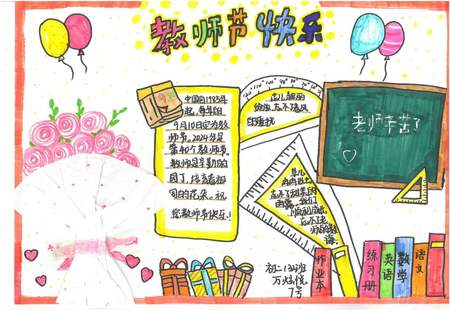 教师节快乐
中国自1985年
起,每年的
9月10日定为教
师节。2024年是
第40个教师节
教师是辛勤的
园丁,培育着祖
国的花朵。祝
您教师节快乐!
9
老师辛苦了
草儿
忘不了
雨露,我们
忘不了老
师的教
诲
初二13班
7号
作业本
练习册
英语
数学
语文